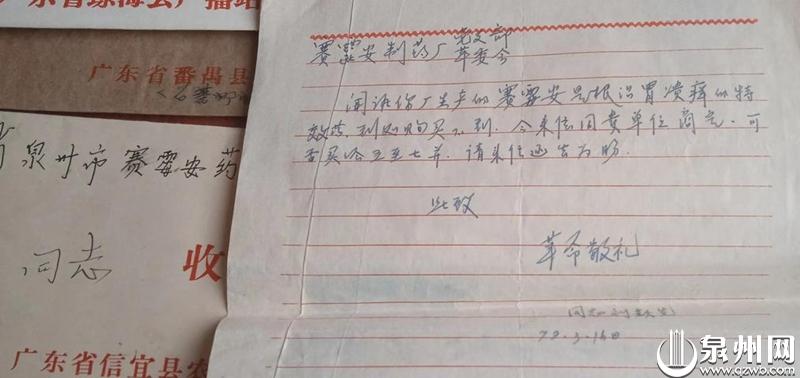 广东省琼海县广播站
广东省番禺县
泉州市赛霉安药
同志 收
广东省信宜县农
赛霉安制药厂党支部
革委会
闻讯你厂生产的赛霉安是根治胃溃疡的特
效药,到处购买不到.今来信同贵单位商定.可
否买给五至七并.请来信函告为盼.
此致
革命敬礼
同志刘
72.3.16日
泉州网
www.qzwb.com